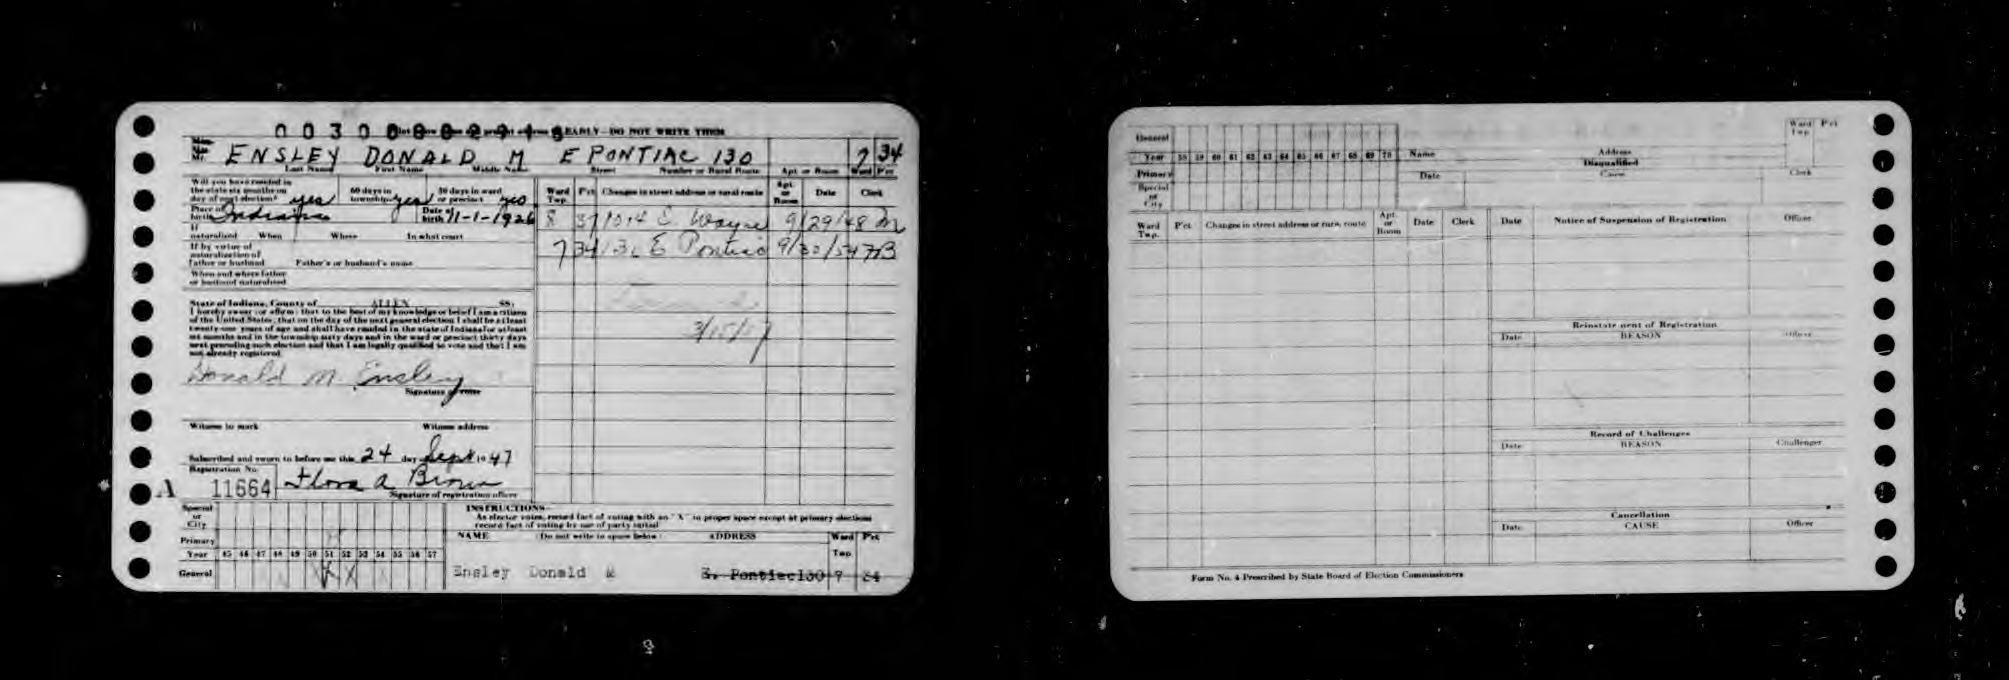 EARLY—DO NOT WRITE THEM
Mr. ENSLEY DONALD M E PONTIAC 130 7 34
Last Name First Name Middle Name Street Number or Rural Route Apt. or Room Ward Pct
Will you have resided in the state six months on day of next election? yes 60 days in township yes 30 days in ward or precinct yes
Place of birth Indiana Date of birth 11-1-1926
If naturalized When Where In what court
If by virtue of naturalization of father or husband Father's or husband's name
When and where father or husband naturalized
State of Indiana, County of ALLEN SS:
I hereby swear (or affirm) that to the best of my knowledge or belief I am a citizen
of the United States; that on the day of the next general election I shall be at least
twenty-one years of age and shall have resided in the state of Indiana for at least
six months and in the township sixty days and in the ward or precinct thirty days
next preceding such election and that I am legally qualified to vote and that I am
not already registered.
Donald M. Ensley
Signature of voter
Witness to mark Witness address
Subscribed and sworn to before me this 24 day Sept 1947
Registration No.
A 11664 Flora A Brown
Signature of registration officer
Ward Twp. Pct Changes in street address or rural route Apt. or Room Date Clerk
8 37 1014 E. Wayne 9/29/48 M
7 34 130 E Pontiac 9/30/54 7B
3/15/57
Special or City
Primary
Year 45 46 47 48 49 50 51 52 53 54 55 56 57
General X X
INSTRUCTIONS—
As elector votes, record fact of voting with an "X" in proper space except at primary elections
record fact of voting by use of party initial
NAME (Do not write in space below) ADDRESS Ward Twp. Pct
Ensley Donald M E. Pontiac130 7 34
General
Year 58 59 60 61 62 63 64 65 66 67 68 69 70
Primary
Special or City
Name Address Ward Twp. Pct
Disqualified
Date Cause Clerk
Ward Twp. Pct Changes in street address or rural route Apt. or Room Date Clerk
Date Notice of Suspension of Registration Officer
Reinstatement of Registration
Date REASON Officer
Record of Challenges
Date REASON Challenger
Cancellation
Date CAUSE Officer
Form No. 4 Prescribed by State Board of Election Commissioners